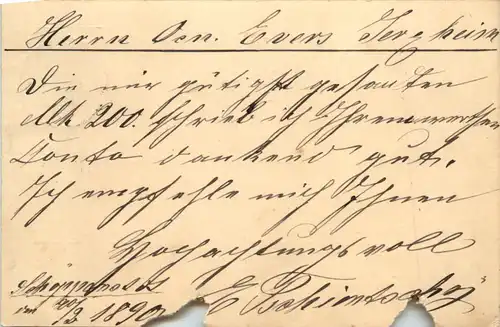 Herrn Oec. Evers Jerxheim
Die mir gütigst gesandten
Mk 200. schrieb ich Ihrem werthen
Conto dankend gut.
Ich empfehle mich Ihnen
Hochachtungsvoll
1890 E